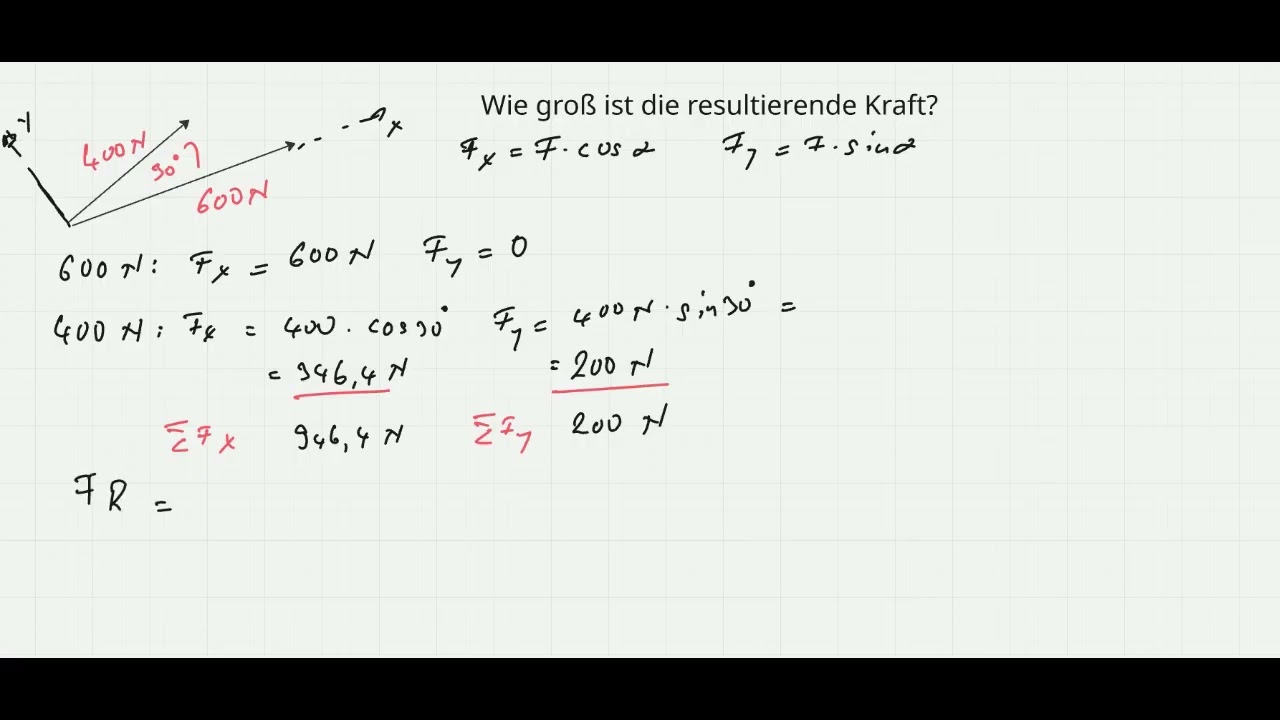 Wie groß ist die resultierende Kraft?
Fx = F · cos α Fy = F · sin α
y
400 N
30°
600 N
x
600 N: Fx = 600 N Fy = 0
400 N: Fx = 400 · cos 30° Fy = 400 N · sin 30° =
= 346,4 N = 200 N
ΣFx 946,4 N ΣFy 200 N
FR =